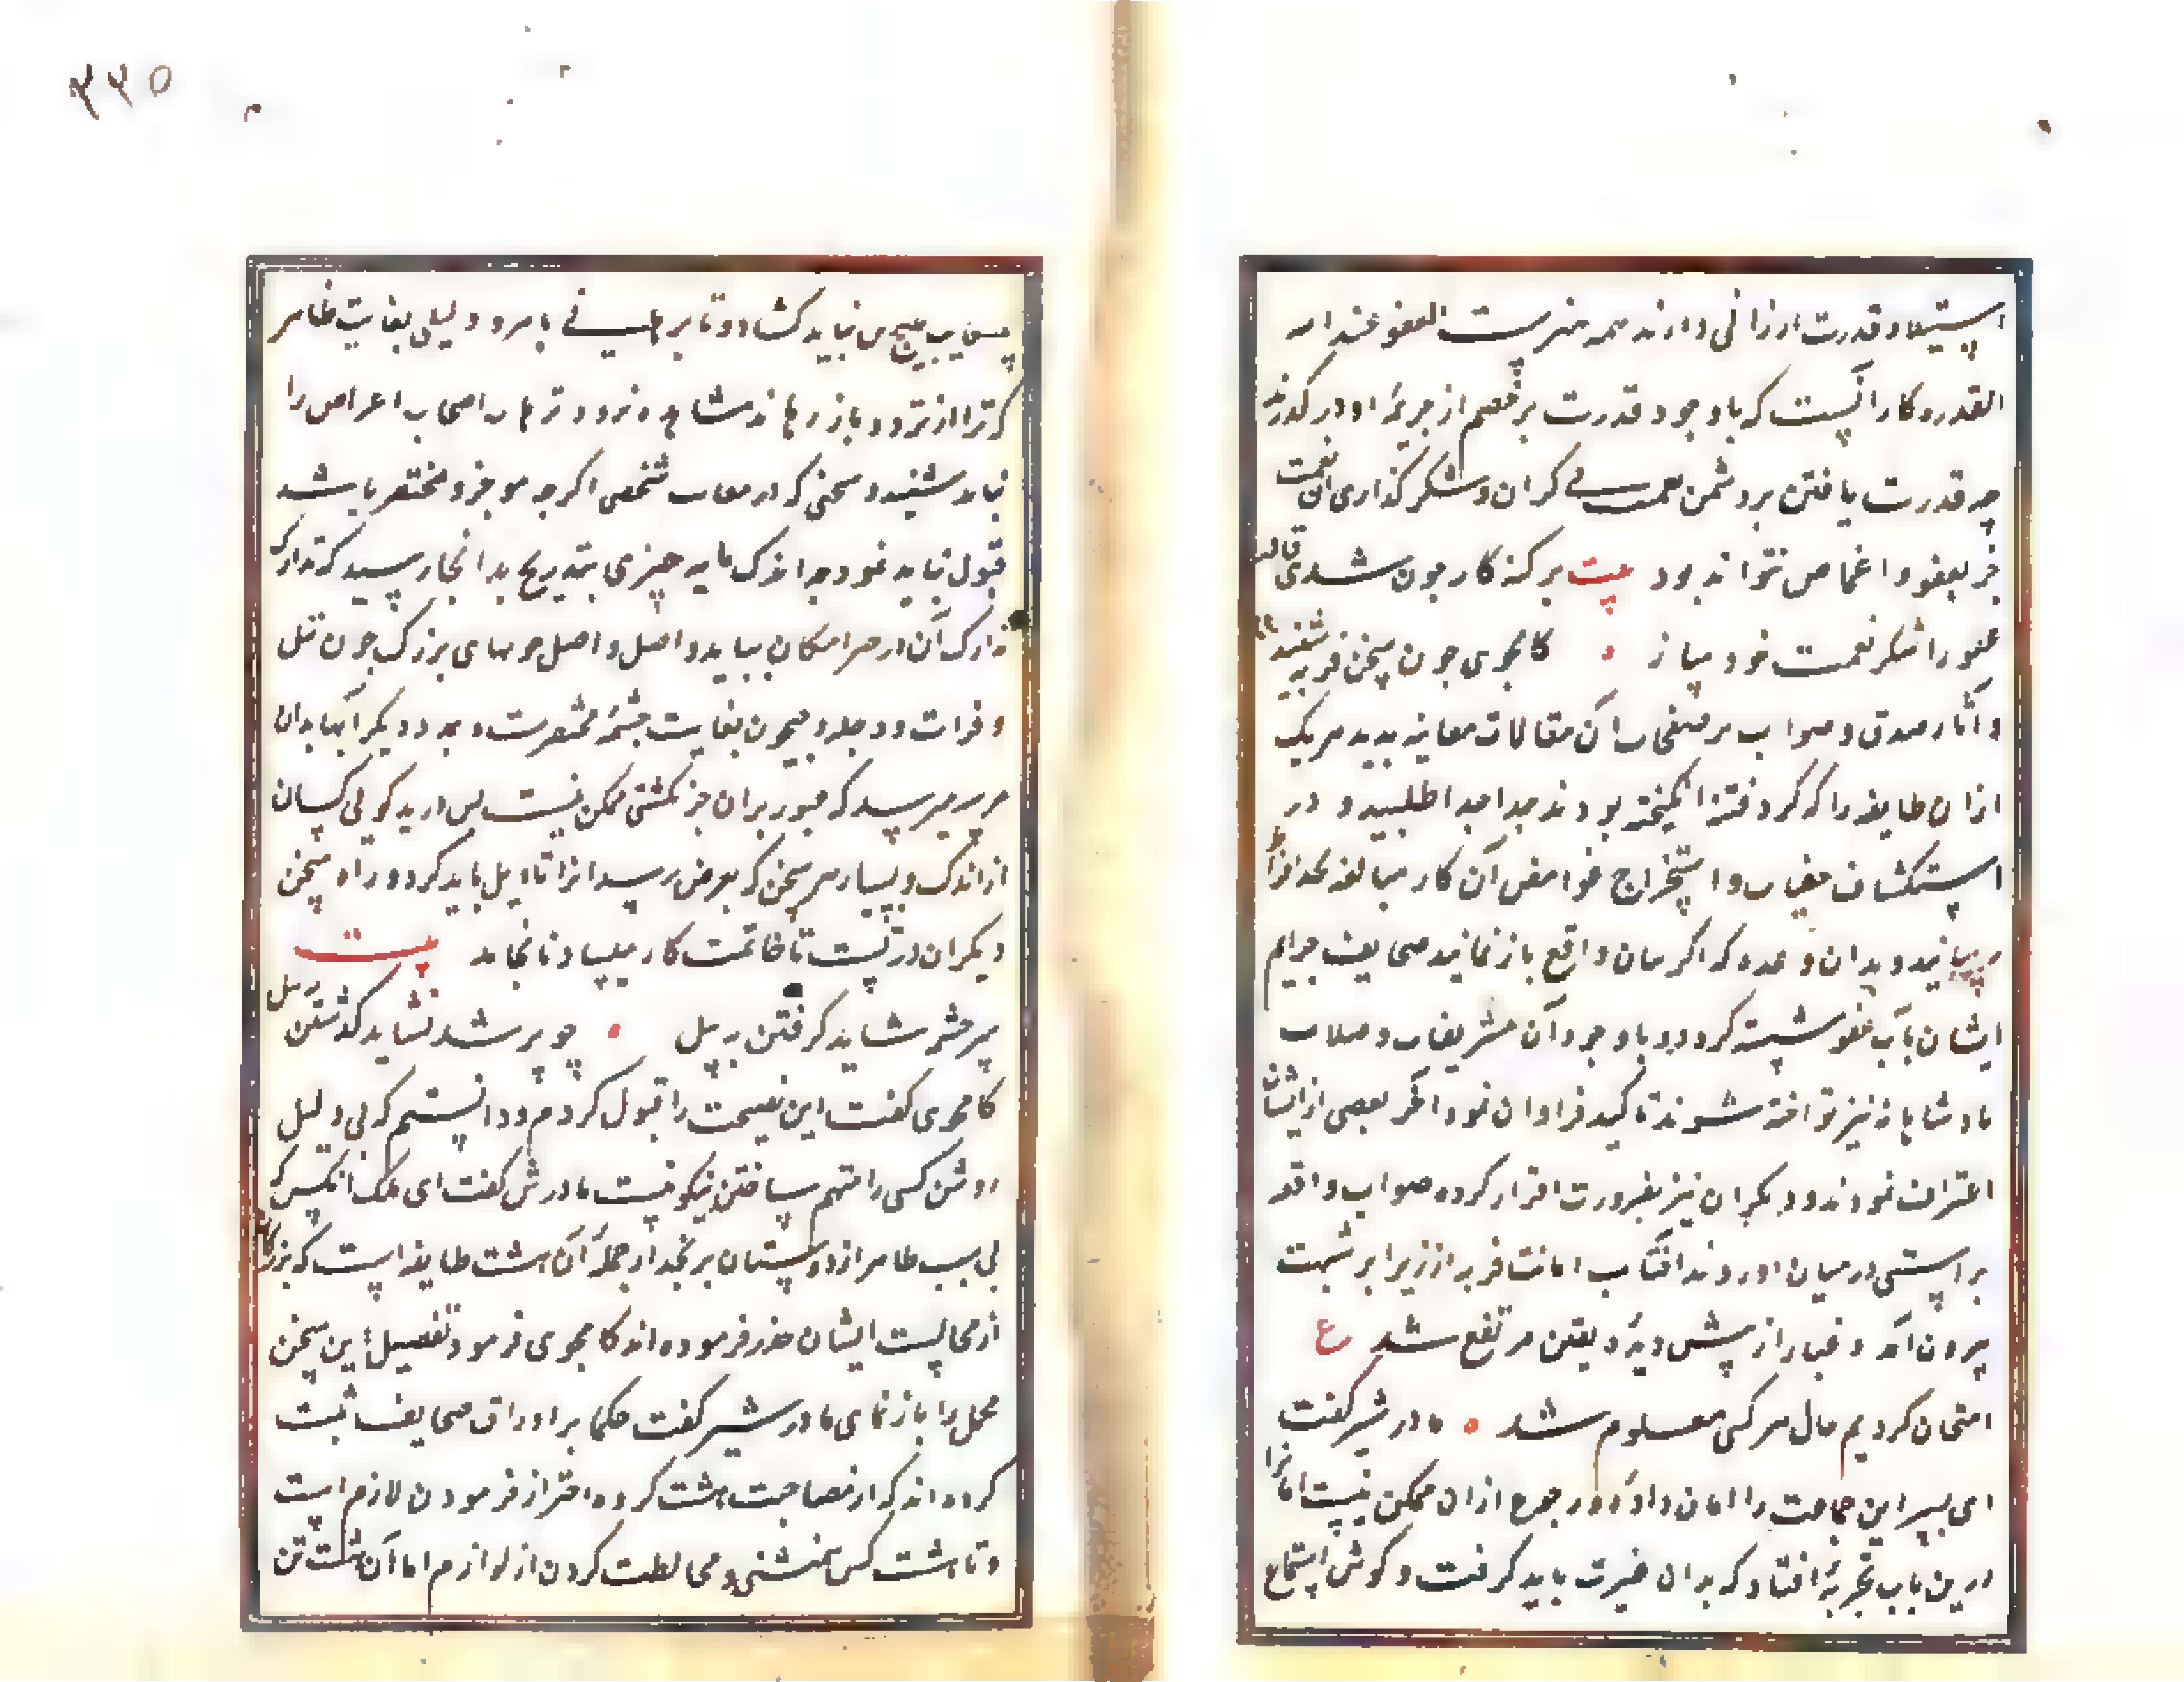 استیلا و قدرت ارزانی دارند همه هنرست العفو عند
القدره و کار آنست که با وجود قدرت بر خصم از جریمهٔ او در کذرند
چه قدرت یافتن بر دشمن نعمت کران و شکر کذاری آن نعمت
جز بعفو و اغماض نتواند بود بیت بر کنه کار چون شدی قادر
عفو را شکر نعمت خود ساز • کامجوی چون سخن فریسه شنید
و آثار صدق و صواب بر صفحات آن مقالات معاینه بدید هر یک
ازان طایفه را که کرد فتنه انکیخته بودند جدا جدا طلبید و در
استکشاف خفیات و استخراج غوامض آن کار مبالغه بحد افراط
رسانید و بدان وعده که اکر سان واقع باز نمایند صحایف جرایم
ایشان بآب عفو شسته کردد و با وجود آن تشریفات و صلات
بادشاهانه نیز نواخته شوند تاکید فراوان نمود آخر بعضی از ایشان
اعتراف نمودند و دیکران نیز بضرورت اقرار کرده صواب واقعه
براستی در میان اوردند افتاب امانت فریسه از زیر ابر شبهت
بیرون آمد و غبار از پیش دیدهٔ یقین مرتفع شد ع
امتحان کردیم حال هر کسی معلوم شد • مادر شیر کفت
ای پسر این جماعت را امان دادهٔ و رجوع ازان ممکن نیست اما ترا
درین باب تجربهٔ افتاد که بدان عبرت باید کرفت و کوش استماع
۳۳۵
بسخن هیچکس نباید کشاد و تا برهانی باهر و دلیلی بغایت ظاهر
که ترا از تردد باز رهاند مشاهده نرود ترهات اصحاب اغراض را
نباید شنید و سخنی که در معایب شخصی اکرچه موجز و مختصر باشد
قبول نباید نمود چه اندک مایه چیزی بتدریج بدانجا رسید که تدارک
تدارک آن در حیز امکان نیاید و اصل و اصل جویهای بزرک چون نیل
و فرات و دجله و جیحون بغایت چشمهٔ مختصرست و بمدد دیکر آبها بدان
مرتبه میرسد که عبور بران جز بکشتی ممکن نیست پس در بدکویی کسان
از اندک و بسیار هر سخن که بعرض رسد انرا تاویل باید کرد و راه سخن
دیکران در بست تا خاتمت کار بفساد نانجامد بیت
سر چشمه شاید کرفتن ببیل • چو پر شد نشاید کذشتن بپیل
کامجوی کفت این نصیحت را قبول کردم و دانستم که بی دلیل
روشن کسی را متهم ساختن نیکو نیست مادرش کفت ای ملک انکس که
بی سبب ظاهر از دوستان برنجد از جملهٔ آن هشت طایفه است که بزرکان
از مجالست ایشان حذر فرموده‌اند کامجوی فرمود تفصیل این سخن
مجمل را باز نمای مادر شیر کفت حکما بر اوراق صحایف ثبت
کرده‌اند که از مصاحبت هشت کروه احتراز فرمودن لازم است
و با هشت کس همنشینی و مخالطت کردن از لوازم اما آن هشت تن